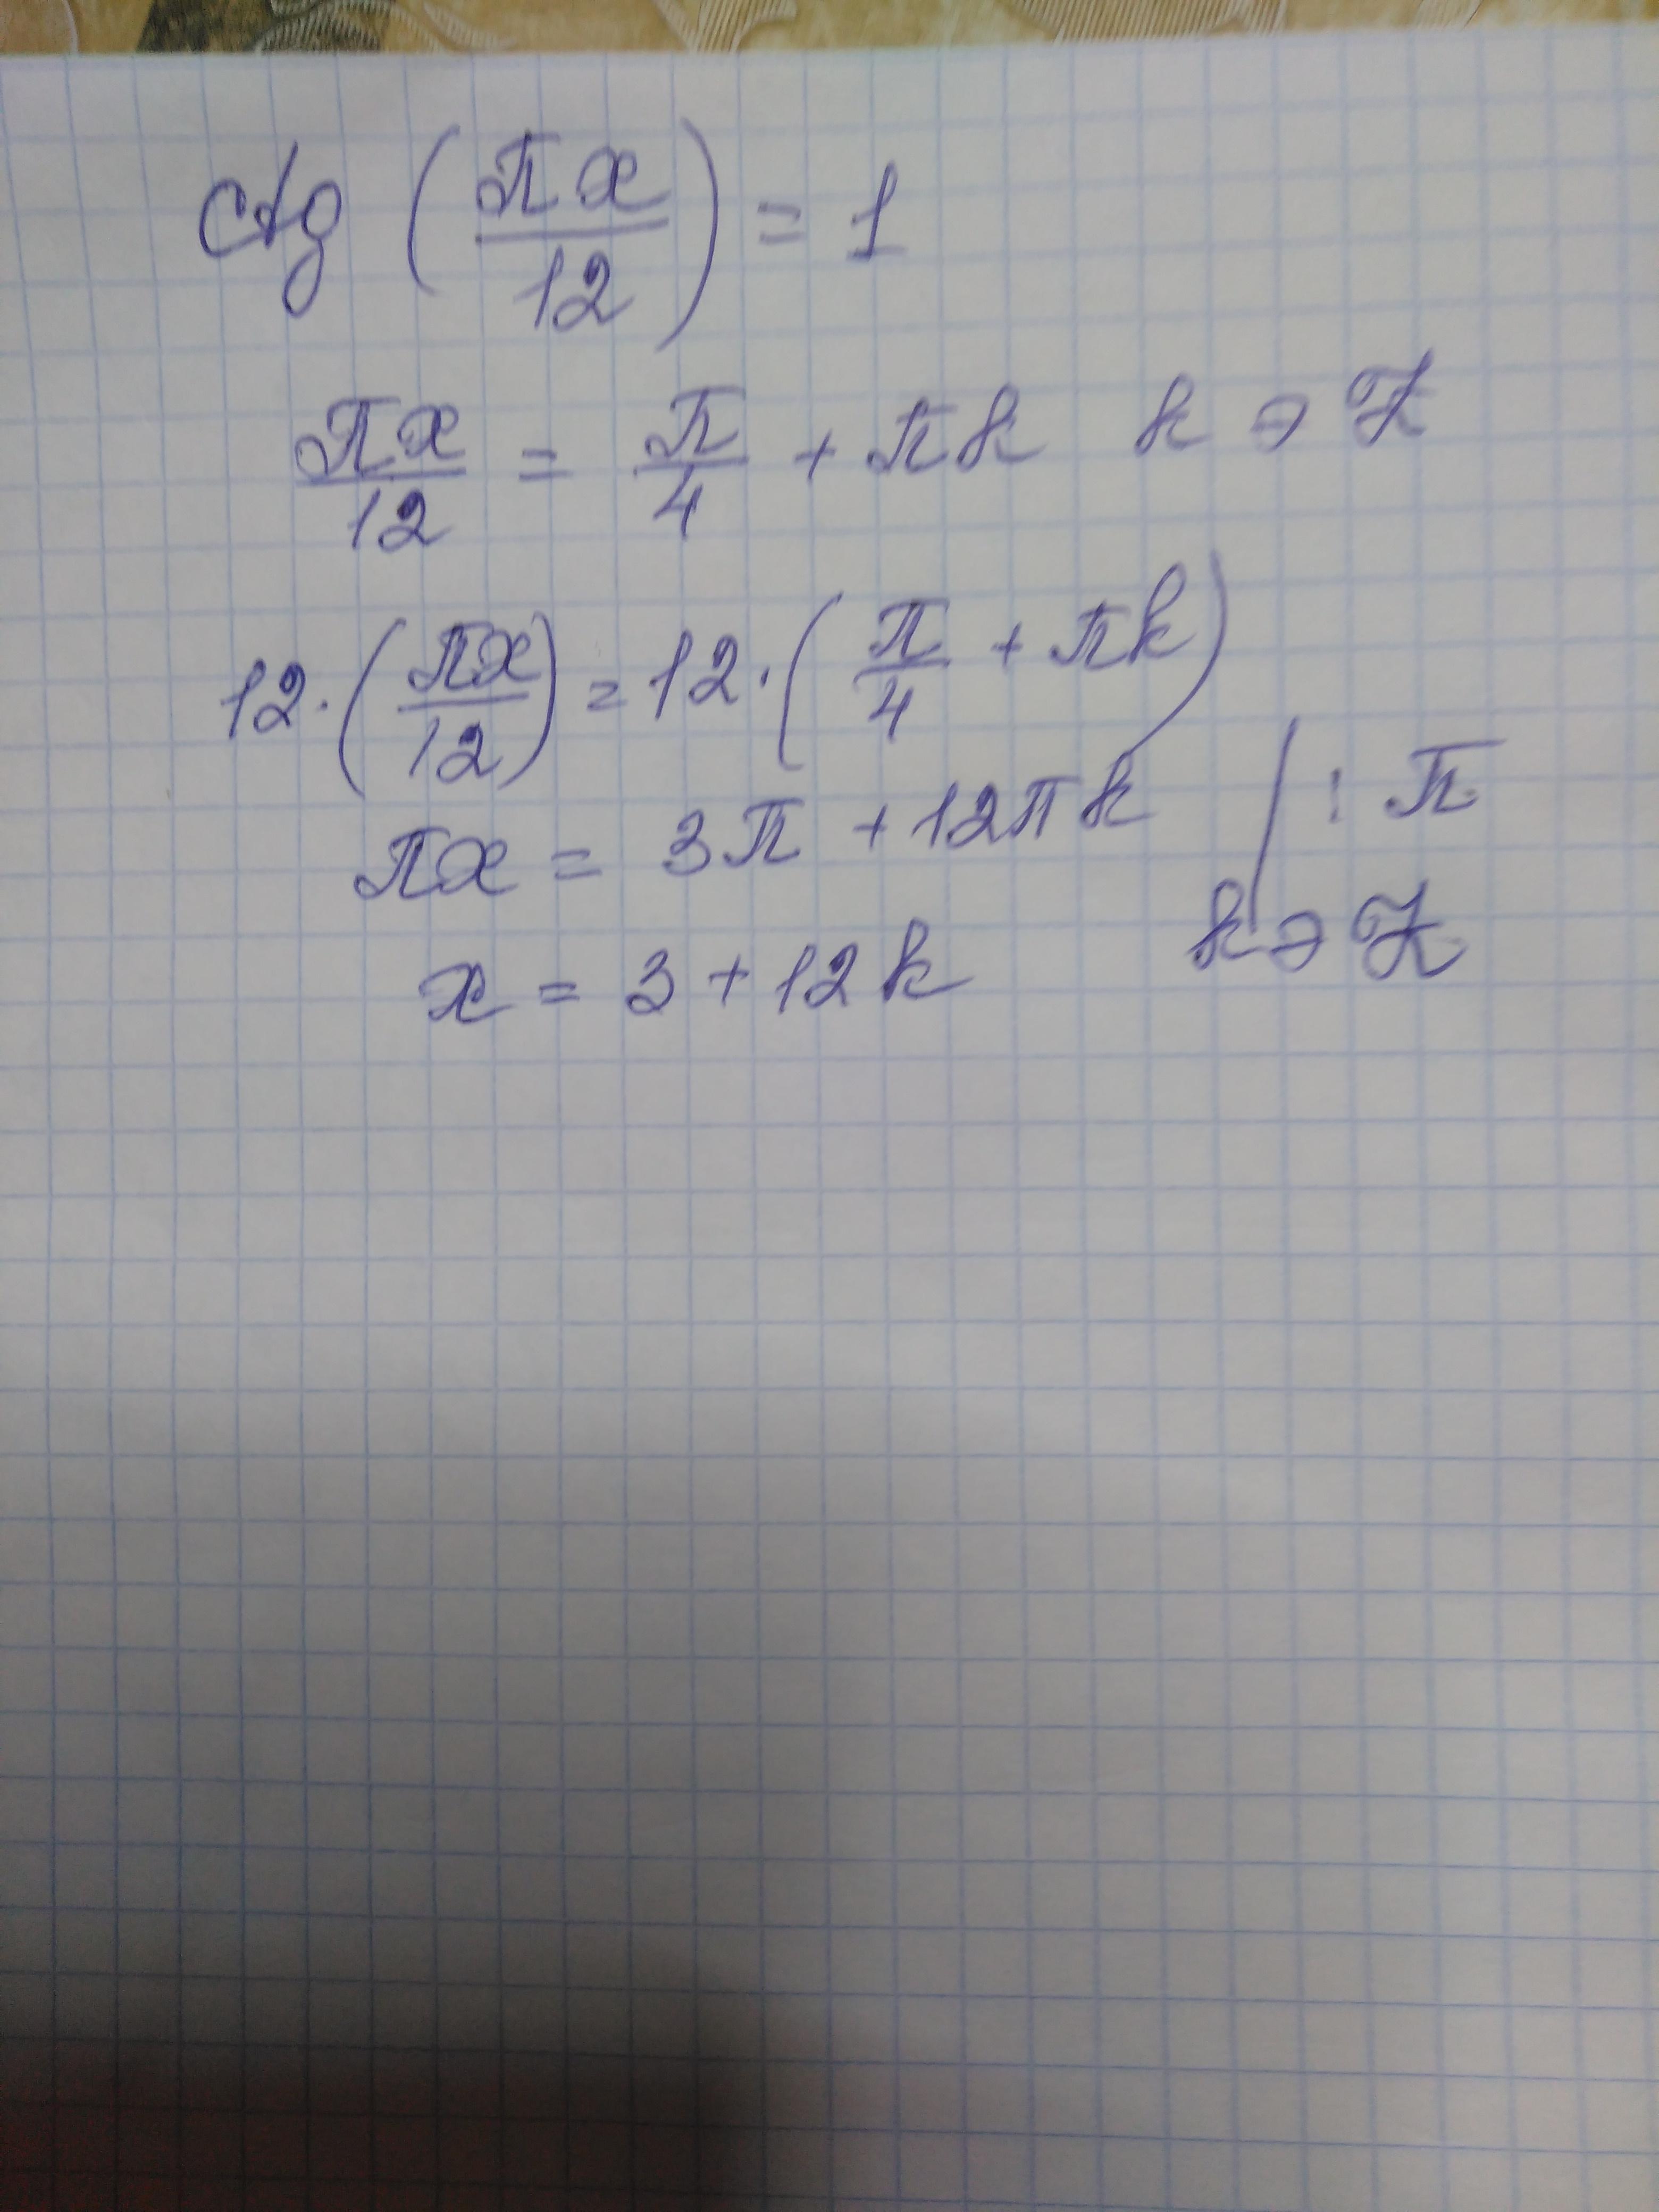 ctg (πx/12) = 1
πx/12 = π/4 + πk k ∋ Z
12·(πx/12) = 12·(π/4 + πk)
πx = 3π + 12πk | : π
x = 3 + 12k k ∋ Z